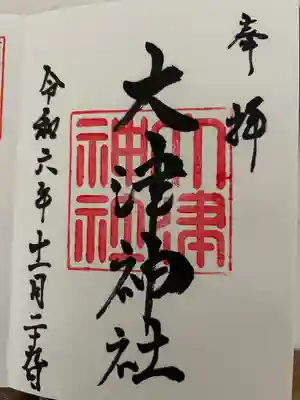 奉拝
大津神社
大津神社
令和六年十一月二十